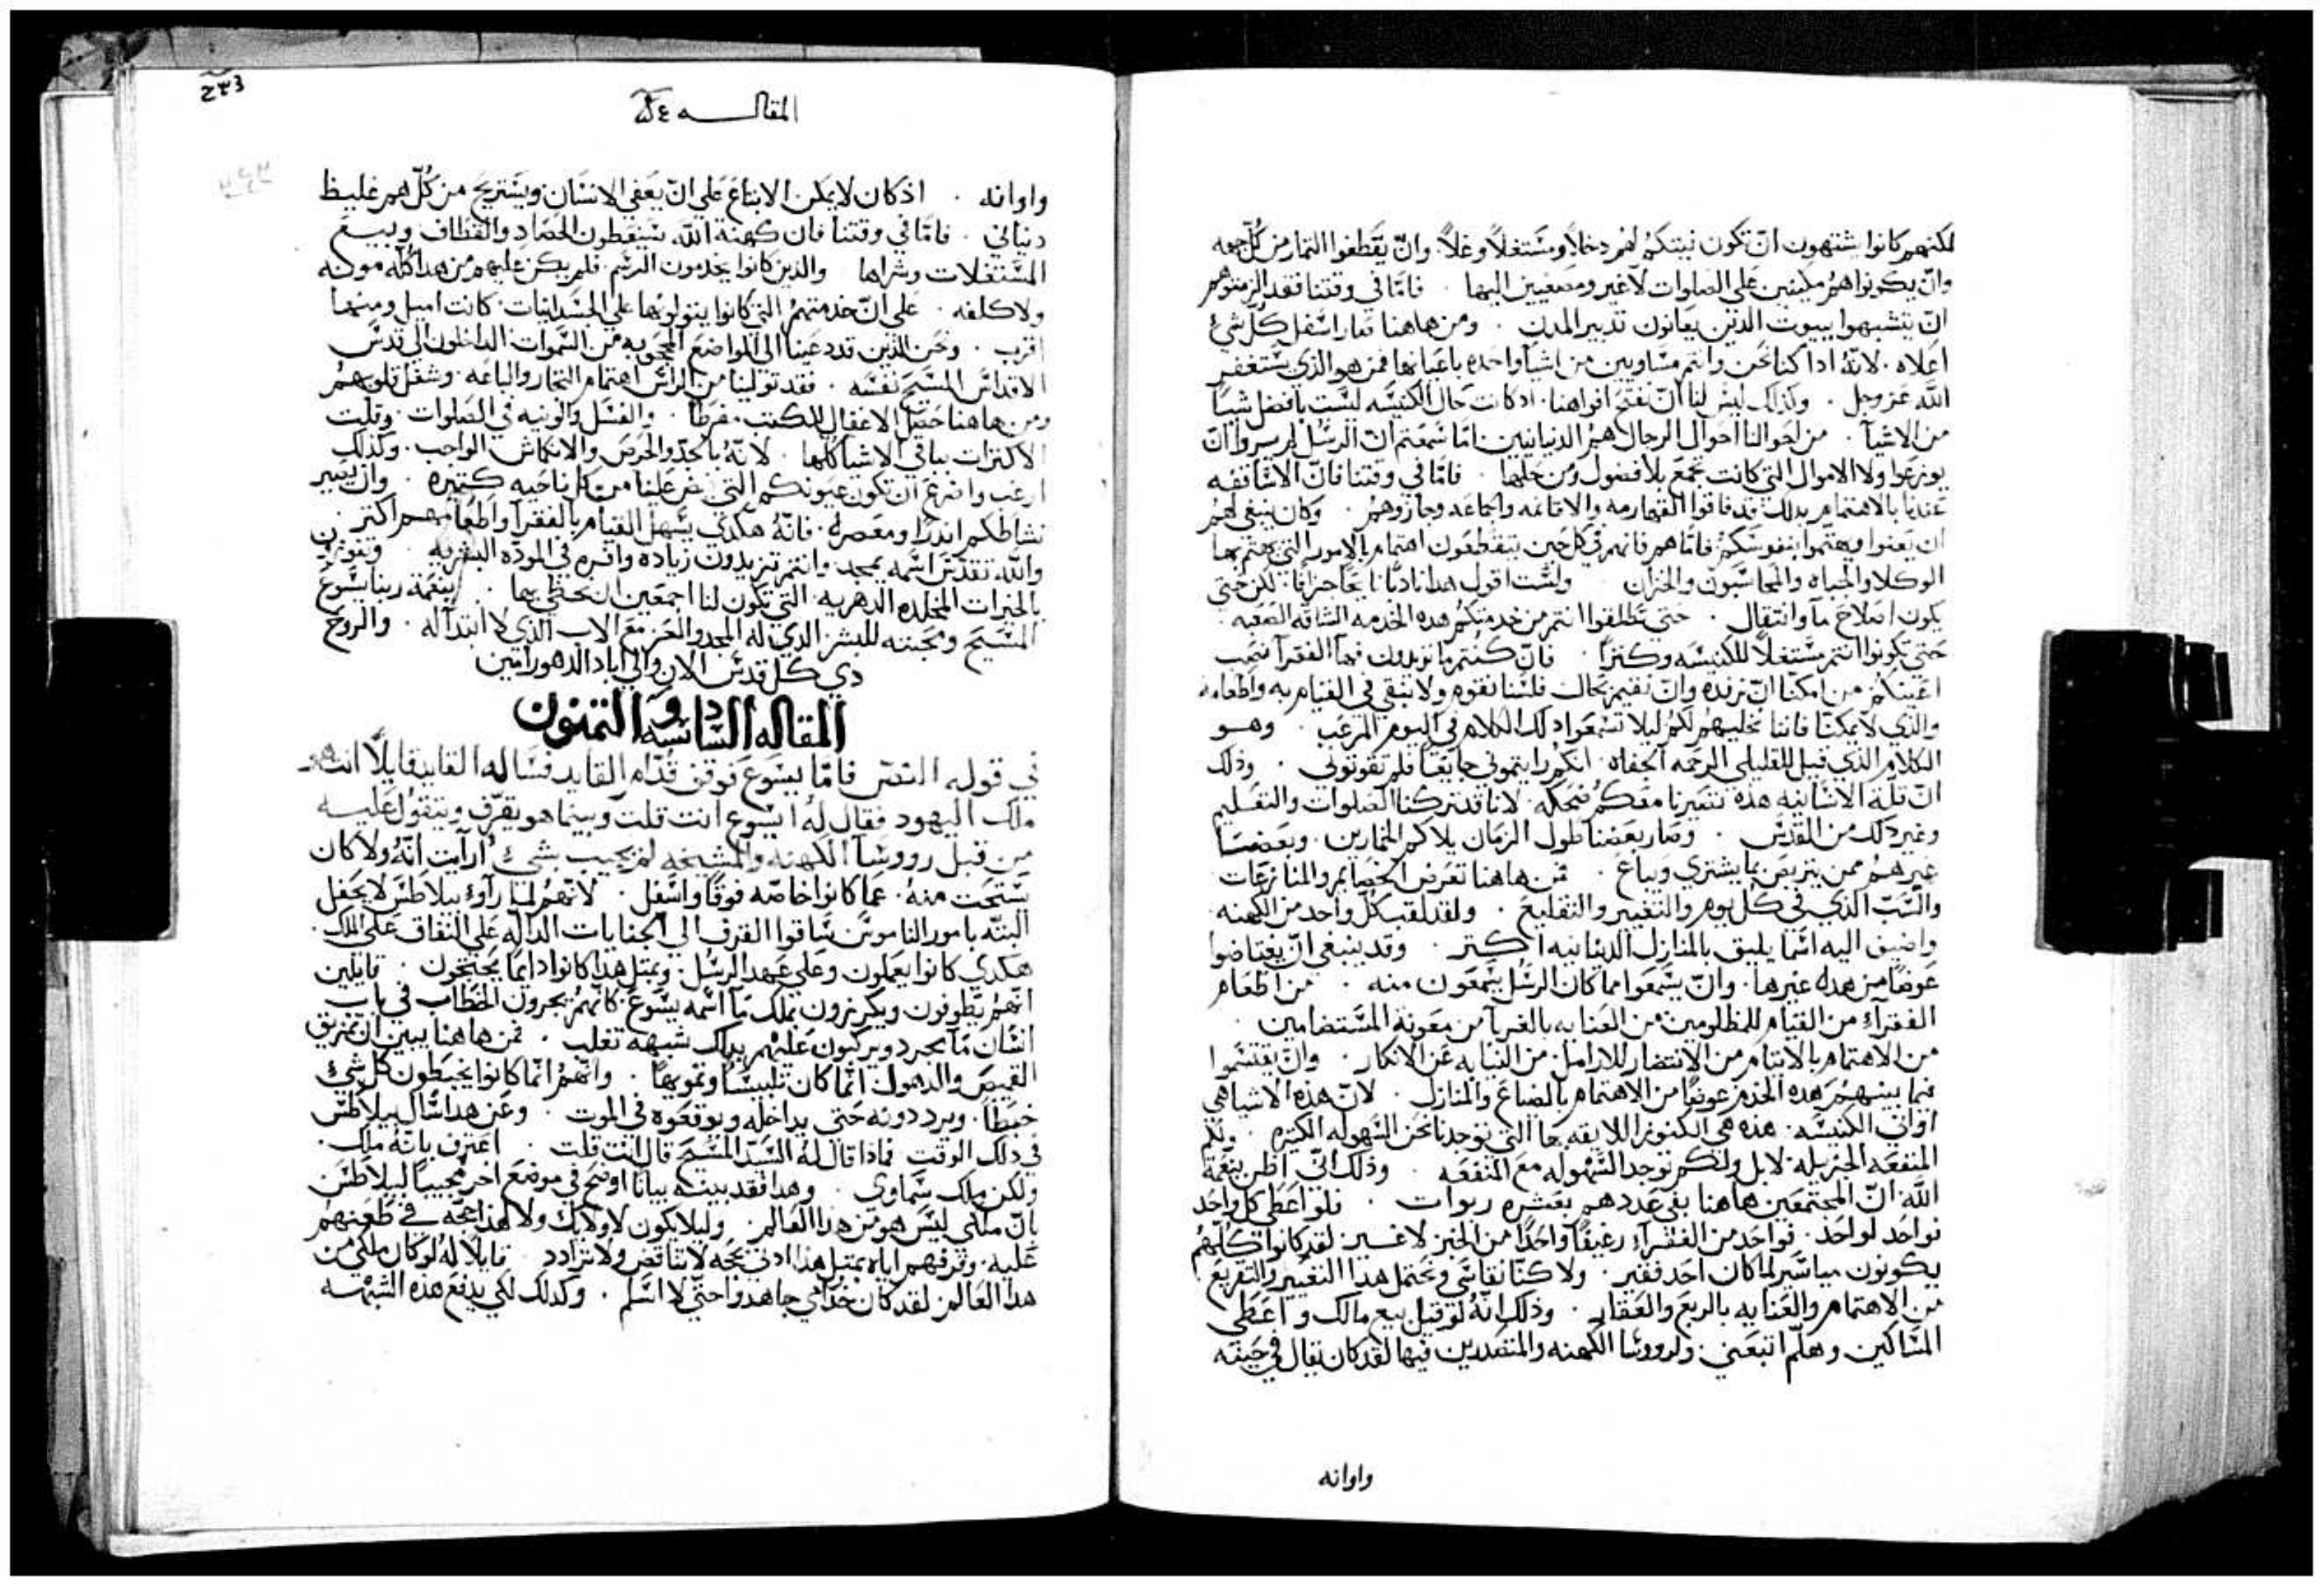 لكنهم كانوا يشتهون ان تكون نيتكم لهم دخلاً ومستغلاً وغلاً. وان يقطفوا الثمار من كل جهه
وان يكونوا هم مكبين على الصلوات لا غير ومصغيين اليها . فامّا في وقتنا فقد الزمتوهم
ان يتشبهوا ببيوت الذين يعانون تدبير المدن . ومن هاهنا صار اسفل كل شي
اعلاه . لانّه اذا كنا نحن وانتم مساويين من اشيا واحده باعيانها فمن هو الذي يستغفر
الله عز وجل . وكذلك ليس لنا ان نفتح افواهنا . اذ كانت حال الكنيسه ليست بافضل شياً
من الاشيآ . من احوالنا احوال الرجال هم الدنيانيين . اما سمعتم انّ الرسل لم يروا ان
يوزعوا ولا الاموال التي كانت تجمع بلا فضول ومن حلها . فامّا في وقتنا فانّ الاساقفه
عندنا بالاهتمام بذلك قد فاقوا القهارمه والاقاعه والباعه وجازوهم . وكان ينبغي لهم
ان يعنوا ويهتموا بنفوسكم فامّا هم فانهم في كل حين يتقطعون اهتمام بالامور التي يهتم بها
الوكلا والجباه والمحاسبون والخزان ولست اقول هذا نادبًا نايحًا جزافًا . لكن حتى
يكون اصلاح ما وانتقال . حتى تطلفوا انتم من خدمتكم هذه الخدمه الشاقه الصعبه .
حتى تكونوا انتم مستغلاً للكنيسه وكنزًا . فان كنتم ما تريدون فها الفقرآ نصب
اعينكم من امكنّا ان نرفده وان نقيم بحاله فلسنا نقوم ولا نبقي في القيام به واطعامه
والذي لا يمكنّا فاننا نخليهم لكم ليلا تسمعوا ذلك الكلام في اليوم المرعب . وهو
الكلام الذي قيل للقليلي الرحمه الجفاه . انكم رايتموني جايعًا فلم تقوتوني . وذلك
ان قلّة الانسانيه هذه تصيرنا معكم ضحكه . لانا قد تركنا الصلوات والتعليم
وغير ذلك من القدس . وصار بعضنا طول الزمان يلاكم الخمارين . وبعضنا
غيرهم ممن يتربص بما يشتري ويباع . فمن هاهنا تعرض الخصايم والمنازعات
والسّبّ الذي في كل يوم والتعيير والتقليع . ولقد لقب كلّ واحد من الكهنه
واضيف اليه اسما يليق بالمنازل الدنيانيه اكثر . وقد ينبغي ان يعتاضوا
عوضًا من هذه غيرها . وان يسمعوا مما كان الرسل يسمعون منه . من اطعام
الفقرآء من القيام للمظلومين من العنايه بالغربآ من معونة المستضامين .
من الاهتمام بالايتام من الانتصار للارامل من النيابه عن الابكار . وان يقتسموا
فيما بينهم هذه الخدم عوضًا من الاهتمام بالضياع والمنازل . لانّ هذه الاشيا هي
اواني الكنيسه . هذه هي الكنوز اللايقه بها التي توجدنا نحن السهوله الكثيره . ولكم
المنفعه الجزيله . لا بل ولكم توجد السهوله مع المنفعه . وذلك انّي اظن بنعمة
الله انّ المجتمعين هاهنا يفي عددهم بعشره ربوات . فلو اعطى كل واحد
فواحد لواحد . فواحد من الفقرآء رغيفًا واحدًا من الخبز لا غير . لقد كانوا كلهم
يكونون مياسّر لما كان احد فقير . ولا كنّا نقاسي ونحتمل هذا التعيير والتقريع
من الاهتمام والعنايه بالربع والعقار . وذلك انّه لو قيل بيع مالك واعطى
المساكين وهلمّ اتبعني . ولرووسا الكهنه والمتصدرين فيها لقد كان يقال في حينه
واوانه
٢٣٣
المقاله ٨٤
واوانه . اذ كان لا يمكن الاتباع على ان يعفي الانسان ويستريح من كلّ هم غليظ
دنياني . فامّا في وقتنا فان كهنة الله يتيقظون للحصاد والقطاف وبيع
المستغلات وشراها والذين كانوا يخدمون الرسم . فلم يكن عليهم من هذا كله مونه
ولا كلفه . على انّ خدمتهم التي كانوا يتولونها على الجسدانيات . كانت اميل ومنها
اقرب . ونحن الذين قد دعينا الى المواضع المحجوبه من السموات الداخلون الى قدس
الاقداس المسيح نفسه . فقد تولينا من الراس اهتمام التجار والباعه . وشغل قلوبهم
ومن هاهنا حصل الاغفال للكتب مفرطًا . والفشل والونيه في الصلوات . وقلّت
الاكتراث بباقي الاشيا كلها . لانّه بالجدّ والحرص والانكماش الواجب . وكذلك
ارغب واضرع ان تكون عيونكم التي تفيض علينا من كل ناحيه كثيره . وان يصير
نشاطكم اندرًا ومعصرة . فانّه هكذى يسهل القيام بالفقرآ واطعامهم اكثر .
والله تقدّس اسمه يمجد . وانتم تزيدون زياده وافره في المودّه البشريه . وتفوزون
بالخيرات المخلده الدهريه . التي تكون لنا اجمعين ان نحظي بها . بنعمة ربنا يسوع
المسيح ومحبته للبشر الذي له المجد والعز مع الاب الذي لا ابتدآ له . والروح
ذي كل قدس الان والى اباد الدهور امين
المقاله السادسه والثمنون
في قوله النص فامّا يسوع فوقف قدّام القايد فساله القايد قايلاً انت هو
ملك اليهود فقال له ايسوع انت قلت وبينما هو يقرف ويتقول عليه
من قبل رووسآ الكهنه والمشيخه لم يجيب بشيء ارآيت انّه ولا كان
يبتحت منه . عما كانوا خاصّه فوقًا واسفل . لانهم لما رآوء بيلاطس لا يحفل
البتّه بامور الناموس ساقوا القرف الى الجنايات الدالّه على النفاق على الملك .
هكذي كانوا يعملون وعلى عهد الرسل . وبمثل هذا كانوا دايمًا يحتجون . قايلين
انهم يطوفون ويكرزون بملك مآ اسمه يسوع . كانهم يجرون الخطاب في باب
انسان مآ مجرد ويركبون عليهم بذلك شبهة تغلب . فمن هاهنا يبين ان تمزيق
القميص والذهول انما كان تلبيسًا وتمويهًا . وانهم انما كانوا يخبطون كل شي
خبطًا . ويرددونه حتى يداخله ويوقعوه في الموت . وعن هذا سال بيلاطس
في ذلك الوقت فماذا قال له السيّد المسيح قال انت قلت . اعترف بانّه ملك .
ولكن ملك سماوي . وهذا فقد بينه بيانًا اوضح في موضع اخر مجيبًا لبيلاطس
بانّ ملكي ليس هو من هذا العالم . وليلا يكون لا ولايك ولا لهذا حجّه في طعنهم
عليه . وقرفهم اياه بمثل هذا ادلى بحجّه لا تناقض ولا ترادد . قايلاً له لو كان ملكي من
هذا العالم لقد كان خدّامي جاهدوا حتى لا اسلم . وكذلك لكي يدفع هذه الشبهه